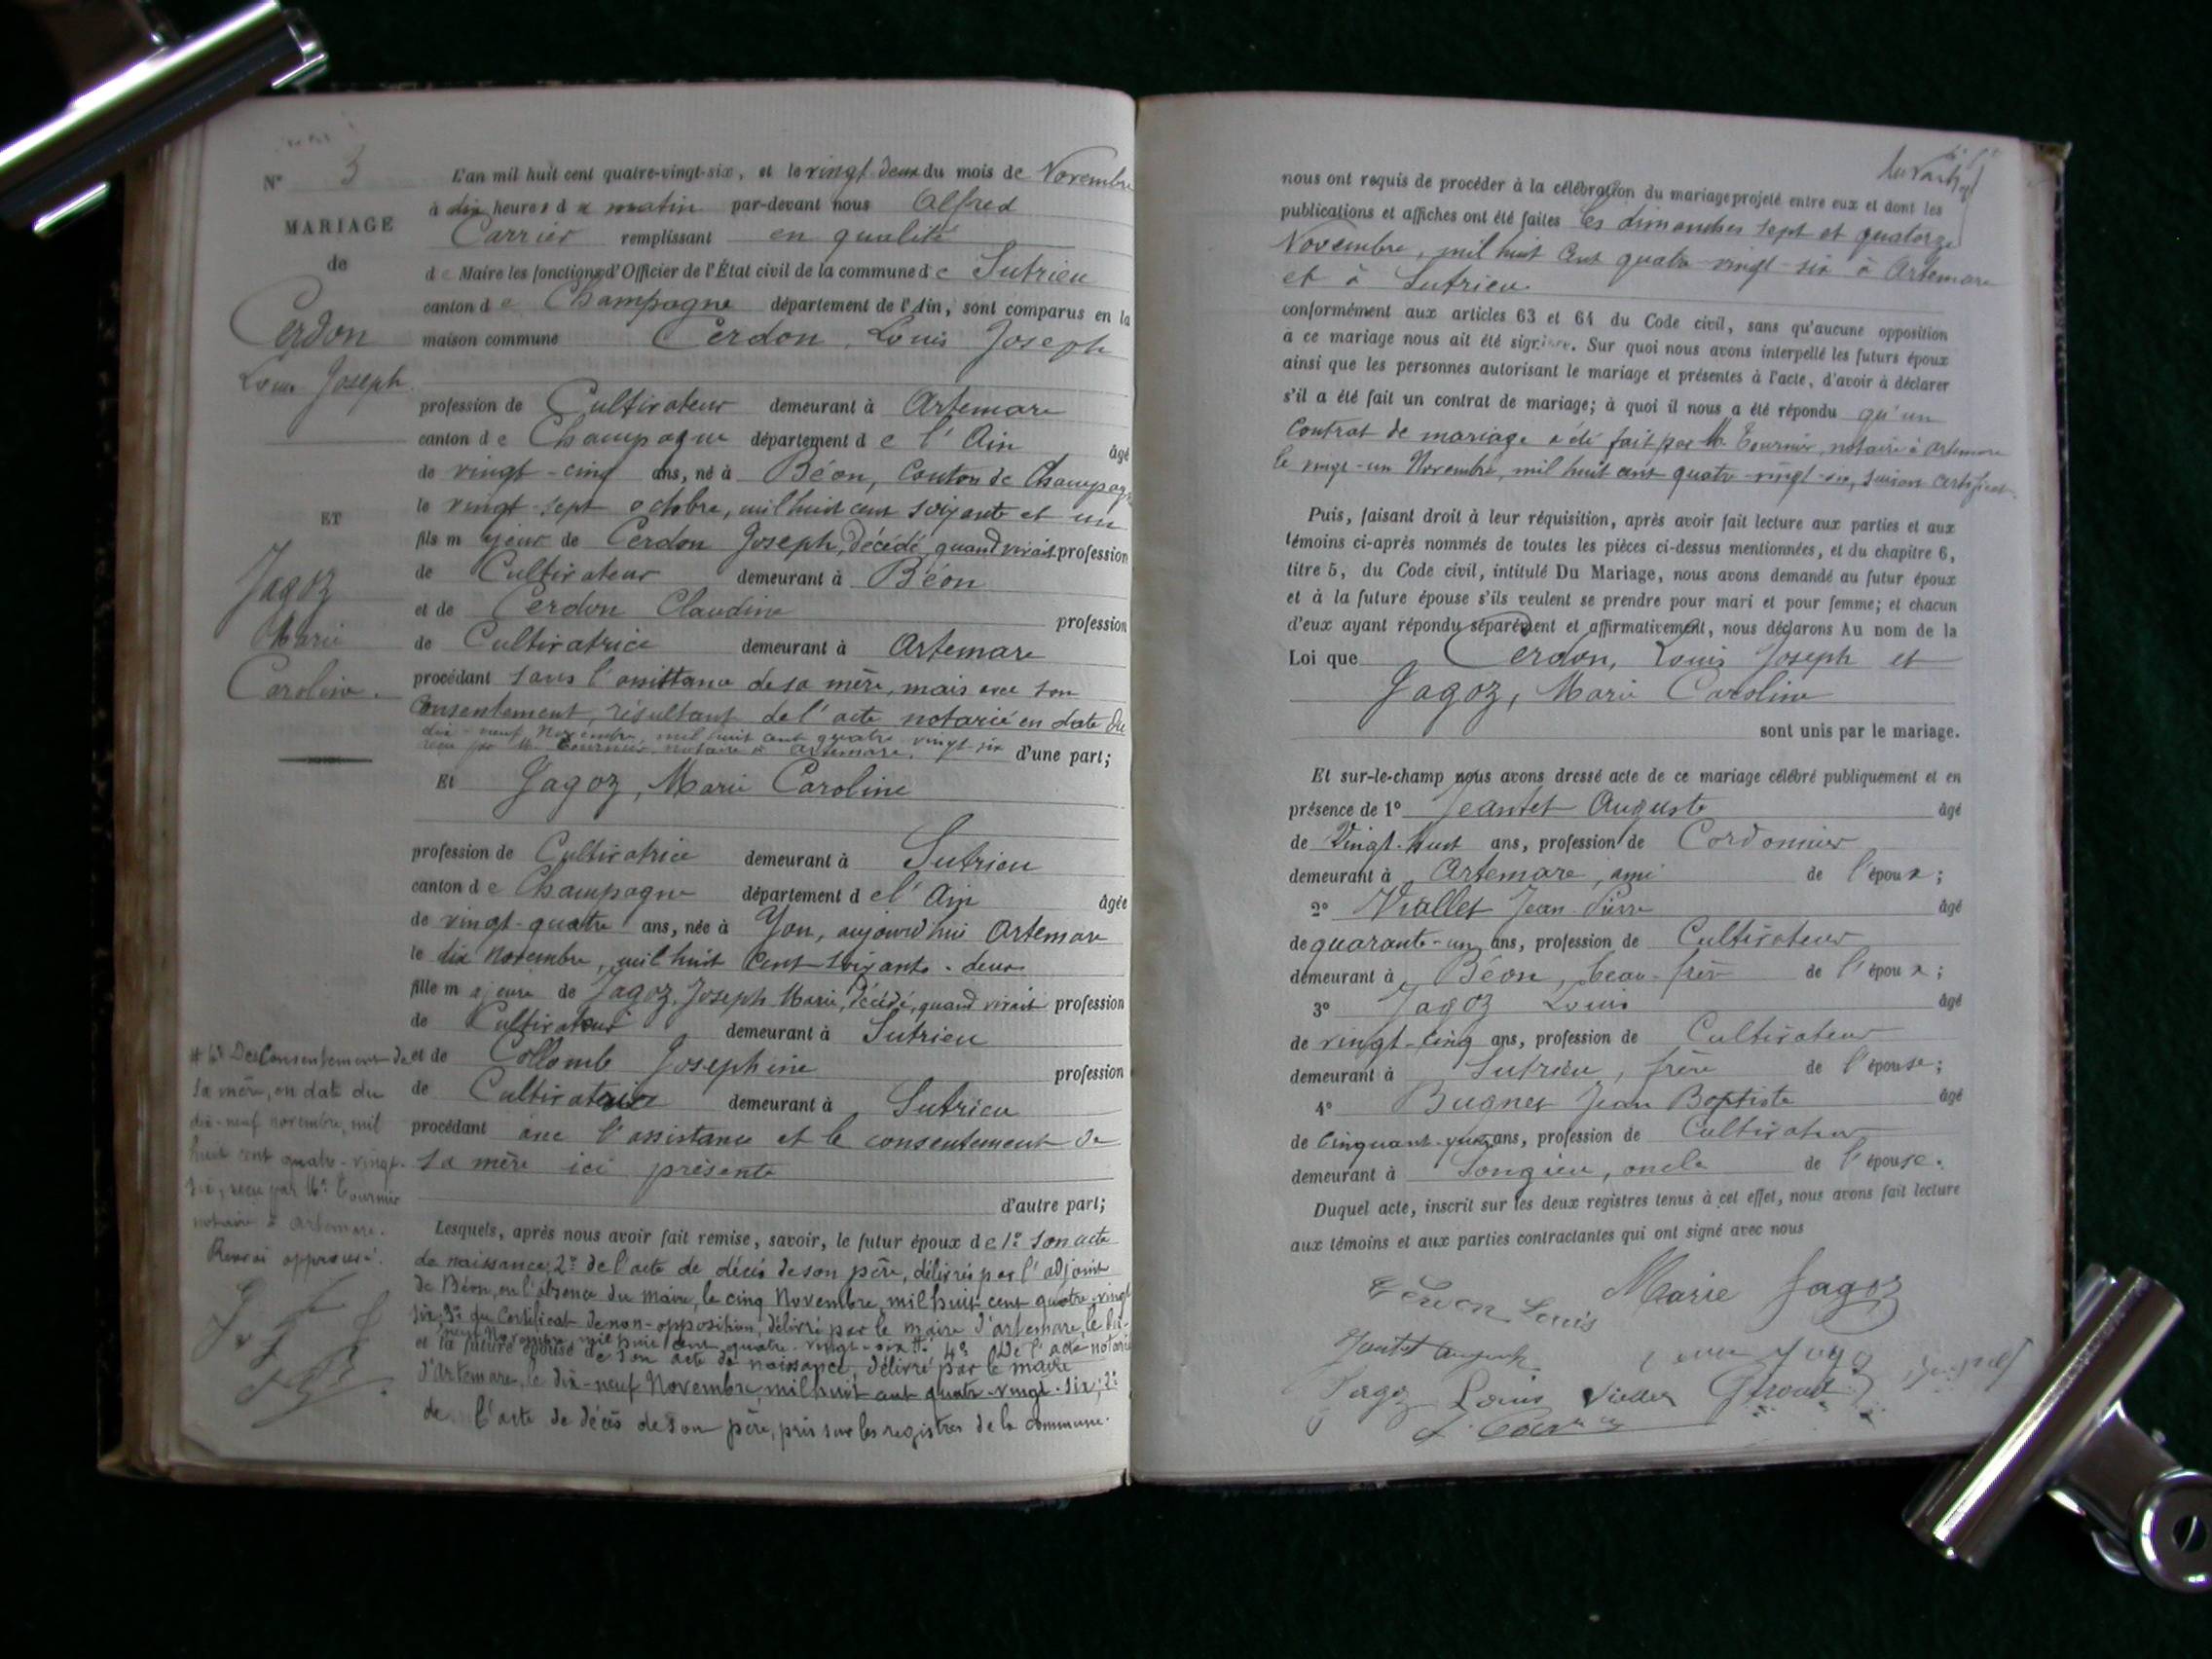 N° 3
MARIAGE
de
Cerdon
Louis Joseph.
ET
Jagoz
Marie
Caroline.
L'an mil huit cent quatre-vingt-six, et le vingt deux du mois de Novembre
à dix heures du matin par-devant nous Alfred
Carrier remplissant en qualité
de Maire les fonctions d'Officier de l'État civil de la commune de Sutrieu
canton de Champagne département de l'Ain, sont comparus en la
maison commune Cerdon, Louis Joseph
profession de Cultivateur demeurant à Artemare
canton de Champagne département de l'Ain âgé
de vingt-cinq ans, né à Béon, Canton de Champagne
le vingt-sept octobre, mil huit cent soixante et un
fils majeur de Cerdon Joseph, décédé, quand vivait profession
de Cultivateur demeurant à Béon
et de Cerdon Claudine profession
de Cultivatrice demeurant à Artemare
procédant sans l'assistance de sa mère, mais avec son
consentement, résultant de l'acte notarié en date du
dix-neuf Novembre, mil huit cent quatre-vingt-six
reçu par Me Tournier, notaire à Artemare. d'une part;
Et Jagoz, Marie Caroline
profession de Cultivatrice demeurant à Sutrieu
canton de Champagne département de l'Ain âgée
de vingt-quatre ans, née à Yon, aujourd'hui Artemare
le dix Novembre, mil huit cent soixante-deux
fille majeure de Jagoz, Joseph Marie, décédé, quand vivait profession
de Cultivateur demeurant à Sutrieu
et de Collomb Josephine profession
de Cultivatrice demeurant à Sutrieu
procédant avec l'assistance et le consentement de
sa mère ici présente
d'autre part;
Lesquels, après nous avoir fait remise, savoir, le futur époux de 1° son acte
de naissance; 2° de l'acte de décès de son père, délivrés par l'adjoint
de Béon, en l'absence du maire, le cinq Novembre, mil huit cent quatre-vingt
six; 3° du Certificat de non-opposition, délivré par le maire d'Artemare, le dix-
neuf Novembre, mil huit cent quatre-vingt-six #. 4° De l'acte notarié
et la future épouse de son acte de naissance, délivré par le maire
d'Artemare, le dix-neuf Novembre, mil huit cent quatre-vingt-six; 2°
de l'acte de décès de son père, pris sur les registres de la commune.
# 4° Du Consentement de
sa mère, en date du
dix-neuf novembre, mil
huit cent quatre-vingt-
six, reçu par Me Tournier
notaire à Artemare.
Renvoi approuvé.
nous ont requis de procéder à la célébration du mariage projeté entre eux et dont les
publications et affiches ont été faites les dimanches sept et quatorze
Novembre, mil huit cent quatre-vingt-six à Artemare
et à Sutrieu.
conformément aux articles 63 et 64 du Code civil, sans qu'aucune opposition
à ce mariage nous ait été signifiée. Sur quoi nous avons interpellé les futurs époux
ainsi que les personnes autorisant le mariage et présentes à l'acte, d'avoir à déclarer
s'il a été fait un contrat de mariage; à quoi il nous a été répondu qu'un
Contrat de mariage a été fait par Me Tournier notaire à Artemare
le vingt-un Novembre, mil huit cent quatre-vingt-six, suivant certificat.
Puis, faisant droit à leur réquisition, après avoir fait lecture aux parties et aux
témoins ci-après nommés de toutes les pièces ci-dessus mentionnées, et du chapitre 6,
titre 5, du Code civil, intitulé Du Mariage, nous avons demandé au futur époux
et à la future épouse s'ils veulent se prendre pour mari et pour femme; et chacun
d'eux ayant répondu séparément et affirmativement, nous déclarons Au nom de la
Loi que Cerdon, Louis Joseph et
Jagoz, Marie Caroline
sont unis par le mariage.
Et sur-le-champ nous avons dressé acte de ce mariage célébré publiquement et en
présence de 1° Jeantet Auguste âgé
de Vingt-huit ans, profession de Cordonnier
demeurant à Artemare, ami de l'époux;
2° Viallet Jean-Pierre âgé
de quarante-un ans, profession de Cultivateur
demeurant à Béon, beau-frère de l'époux;
3° Jagoz Louis âgé
de vingt-cinq ans, profession de Cultivateur
demeurant à Sutrieu, frère de l'épouse;
4° Bugnet Jean Baptiste âgé
de Cinquante ans, profession de Cultivateur
demeurant à Songieu, oncle de l'épouse.
Duquel acte, inscrit sur les deux registres tenus à cet effet, nous avons fait lecture
aux témoins et aux parties contractantes qui ont signé avec nous
Cerdon Louis Marie Jagoz
Jagoz Louis Viallet Giroud